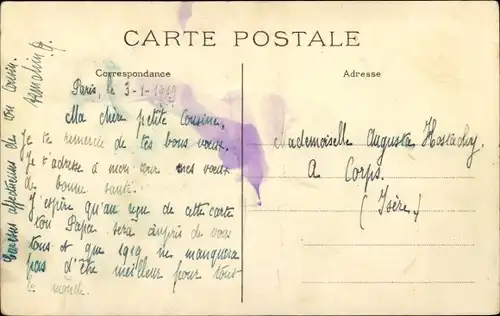 CARTE POSTALE
Correspondance
Adresse
Paris, le 3-1-1919
Ma chère petite Cousine,
Je te remercie de tes bons vœux.
Je t'adresse à mon tour mes vœux
de bonne santé.
J'espère qu'au reçu de cette carte
ton Papa sera auprès de vous
tous et que 1919 ne manquera
pas d'être meilleur pour tout
le monde.
affectueuses de ton Cousin.
Mademoiselle Augusta Hostachy
A Corps.
(Isère)